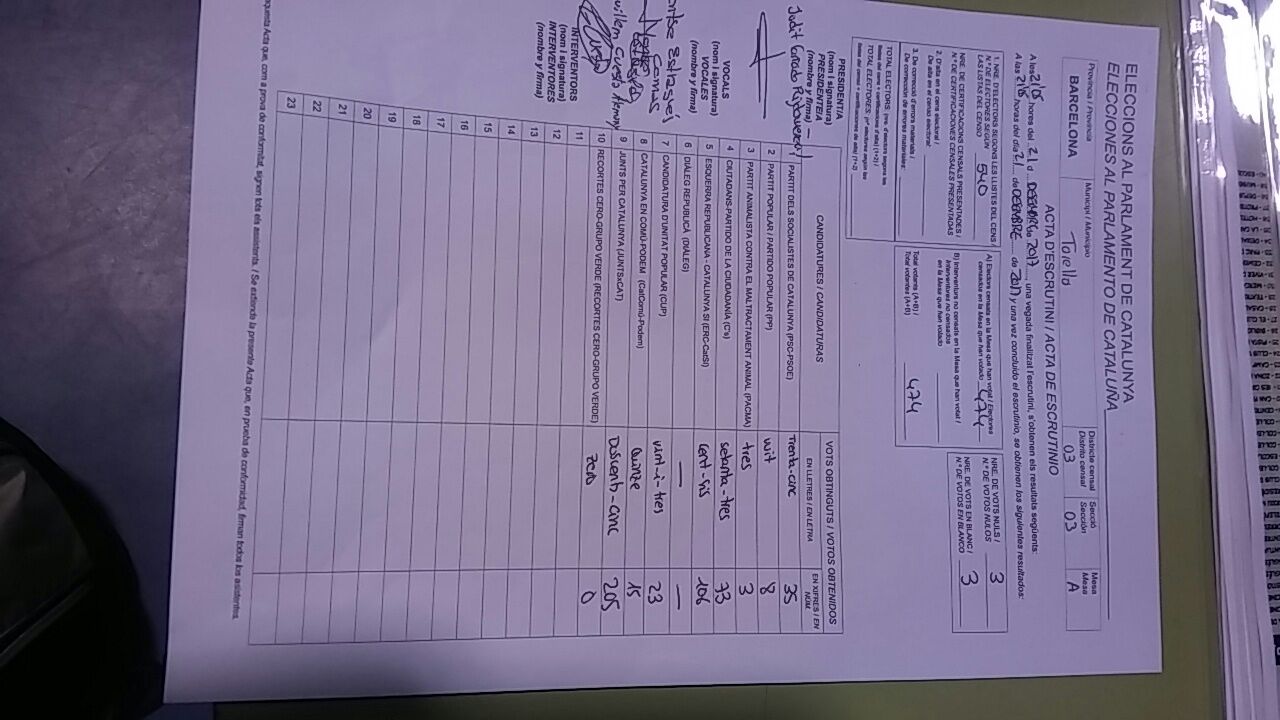 ELECCIONS AL PARLAMENT DE CATALUNYA
ELECCIONES AL PARLAMENTO DE CATALUÑA
Província / Provincia
BARCELONA
Municipi / Municipio
Torelló
Districte censal
Distrito censal
03
Secció
Sección
03
Mesa
Mesa
A
ACTA D'ESCRUTINI / ACTA DE ESCRUTINIO
A les 21'15 hores del 21 d DESEMBRE 2017, una vegada finalitzat l'escrutini, s'obtenen els resultats següents:
A las 21'15 horas del día 21 de DESEMBRE de 2017 y una vez concluido el escrutinio, se obtienen los siguientes resultados:
1. NRE. D'ELECTORS SEGONS LES LLISTES DEL CENS /
N.º DE ELECTORES SEGÚN
LAS LISTAS DEL CENSO
540
NRE. DE CERTIFICACIONS CENSALS PRESENTADES /
N.º DE CERTIFICACIONES CENSALES PRESENTADAS
2. D'alta en el cens electoral /
De alta en el censo electoral:
3. De correcció d'errors materials /
De corrección de errores materiales:
TOTAL ELECTORS (nre. d'electors segons les
llistes del cens + certificacions d'alta) (1+2) /
TOTAL ELECTORES: (nº electores según las
listas del censo + certificaciones de alta) (1+2)
A) Electors censats en la Mesa que han votat / Electores
censados en la Mesa que han votado
474
B) Interventors no censats en la Mesa que han votat /
Interventores no censados
en la Mesa que han votado
Total votants (A+B) /
Total votantes (A+B)
474
NRE. DE VOTS NULS /
N.º DE VOTOS NULOS
3
NRE. DE VOTS EN BLANC /
N.º DE VOTOS EN BLANCO
3
CANDIDATURES / CANDIDATURAS
VOTS OBTINGUTS / VOTOS OBTENIDOS
EN LLETRES / EN LETRA
EN XIFRES / EN NÚM.
1 PARTIT DELS SOCIALISTES DE CATALUNYA (PSC-PSOE) Trenta-cinc 35
2 PARTIT POPULAR / PARTIDO POPULAR (PP) vuit 8
3 PARTIT ANIMALISTA CONTRA EL MALTRACTAMENT ANIMAL (PACMA) tres 3
4 CIUTADANS-PARTIDO DE LA CIUDADANÍA (C's) setanta-tres 73
5 ESQUERRA REPUBLICANA - CATALUNYA SÍ (ERC-CatSí) Cent-sis 106
6 DIÀLEG REPUBLICÀ (DIÀLEG) — —
7 CANDIDATURA D'UNITAT POPULAR (CUP) vint-i-tres 23
8 CATALUNYA EN COMÚ-PODEM (CatComú-Podem) Quinze 15
9 JUNTS PER CATALUNYA (JUNTSxCAT) Doscents-cinc 205
10 RECORTES CERO-GRUPO VERDE (RECORTES CERO-GRUPO VERDE) zero 0
11
12
13
14
15
16
17
18
19
20
21
22
23
PRESIDENT/A
(nom i signatura)
PRESIDENTE/A
(nombre y firma)
Judit
VOCALS
(nom i signatura)
VOCALES
(nombre y firma)
Comas
INTERVENTORS
(nom i signatura)
INTERVENTORES
(nombre y firma)
Acta que, com a prova de conformitat, signen tots els assistents. / Se extiende la presente Acta que, en prueba de conformidad, firman todos los asistentes.